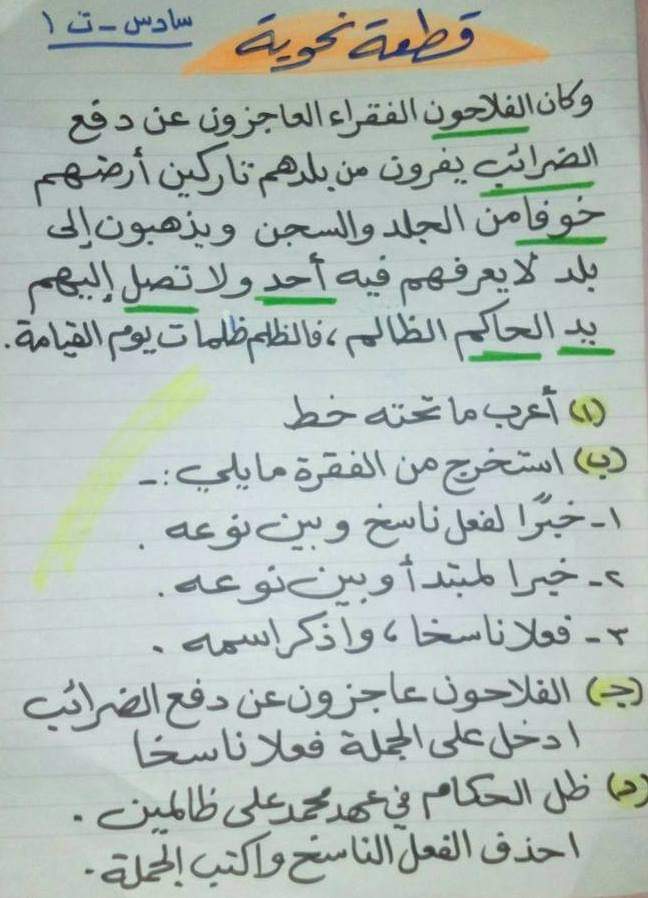 سادس - ت ١
قطعة نحوية
وكان الفلاحون الفقراء العاجزون عن دفع
الضرائب يفرون من بلدهم تاركين أرضهم
خوفا من الجلد والسجن ويذهبون إلى
بلد لا يعرفهم فيه أحد ولا تصل إليهم
يد الحاكم الظالم ، فالظلم ظلمات يوم القيامة .
(١) أعرب ما تحته خط
(ب) استخرج من الفقرة ما يلي :-
١- خبرًا لفعل ناسخ وبين نوعه .
٢- خبرا لمبتدأ وبين نوعه .
٣- فعلا ناسخا ، واذكر اسمه .
(جـ) الفلاحون عاجزون عن دفع الضرائب
ادخل على الجملة فعلا ناسخا
(د) ظل الحكام في عهد محمد علي ظالمين .
احذف الفعل الناسخ واكتب الجملة .